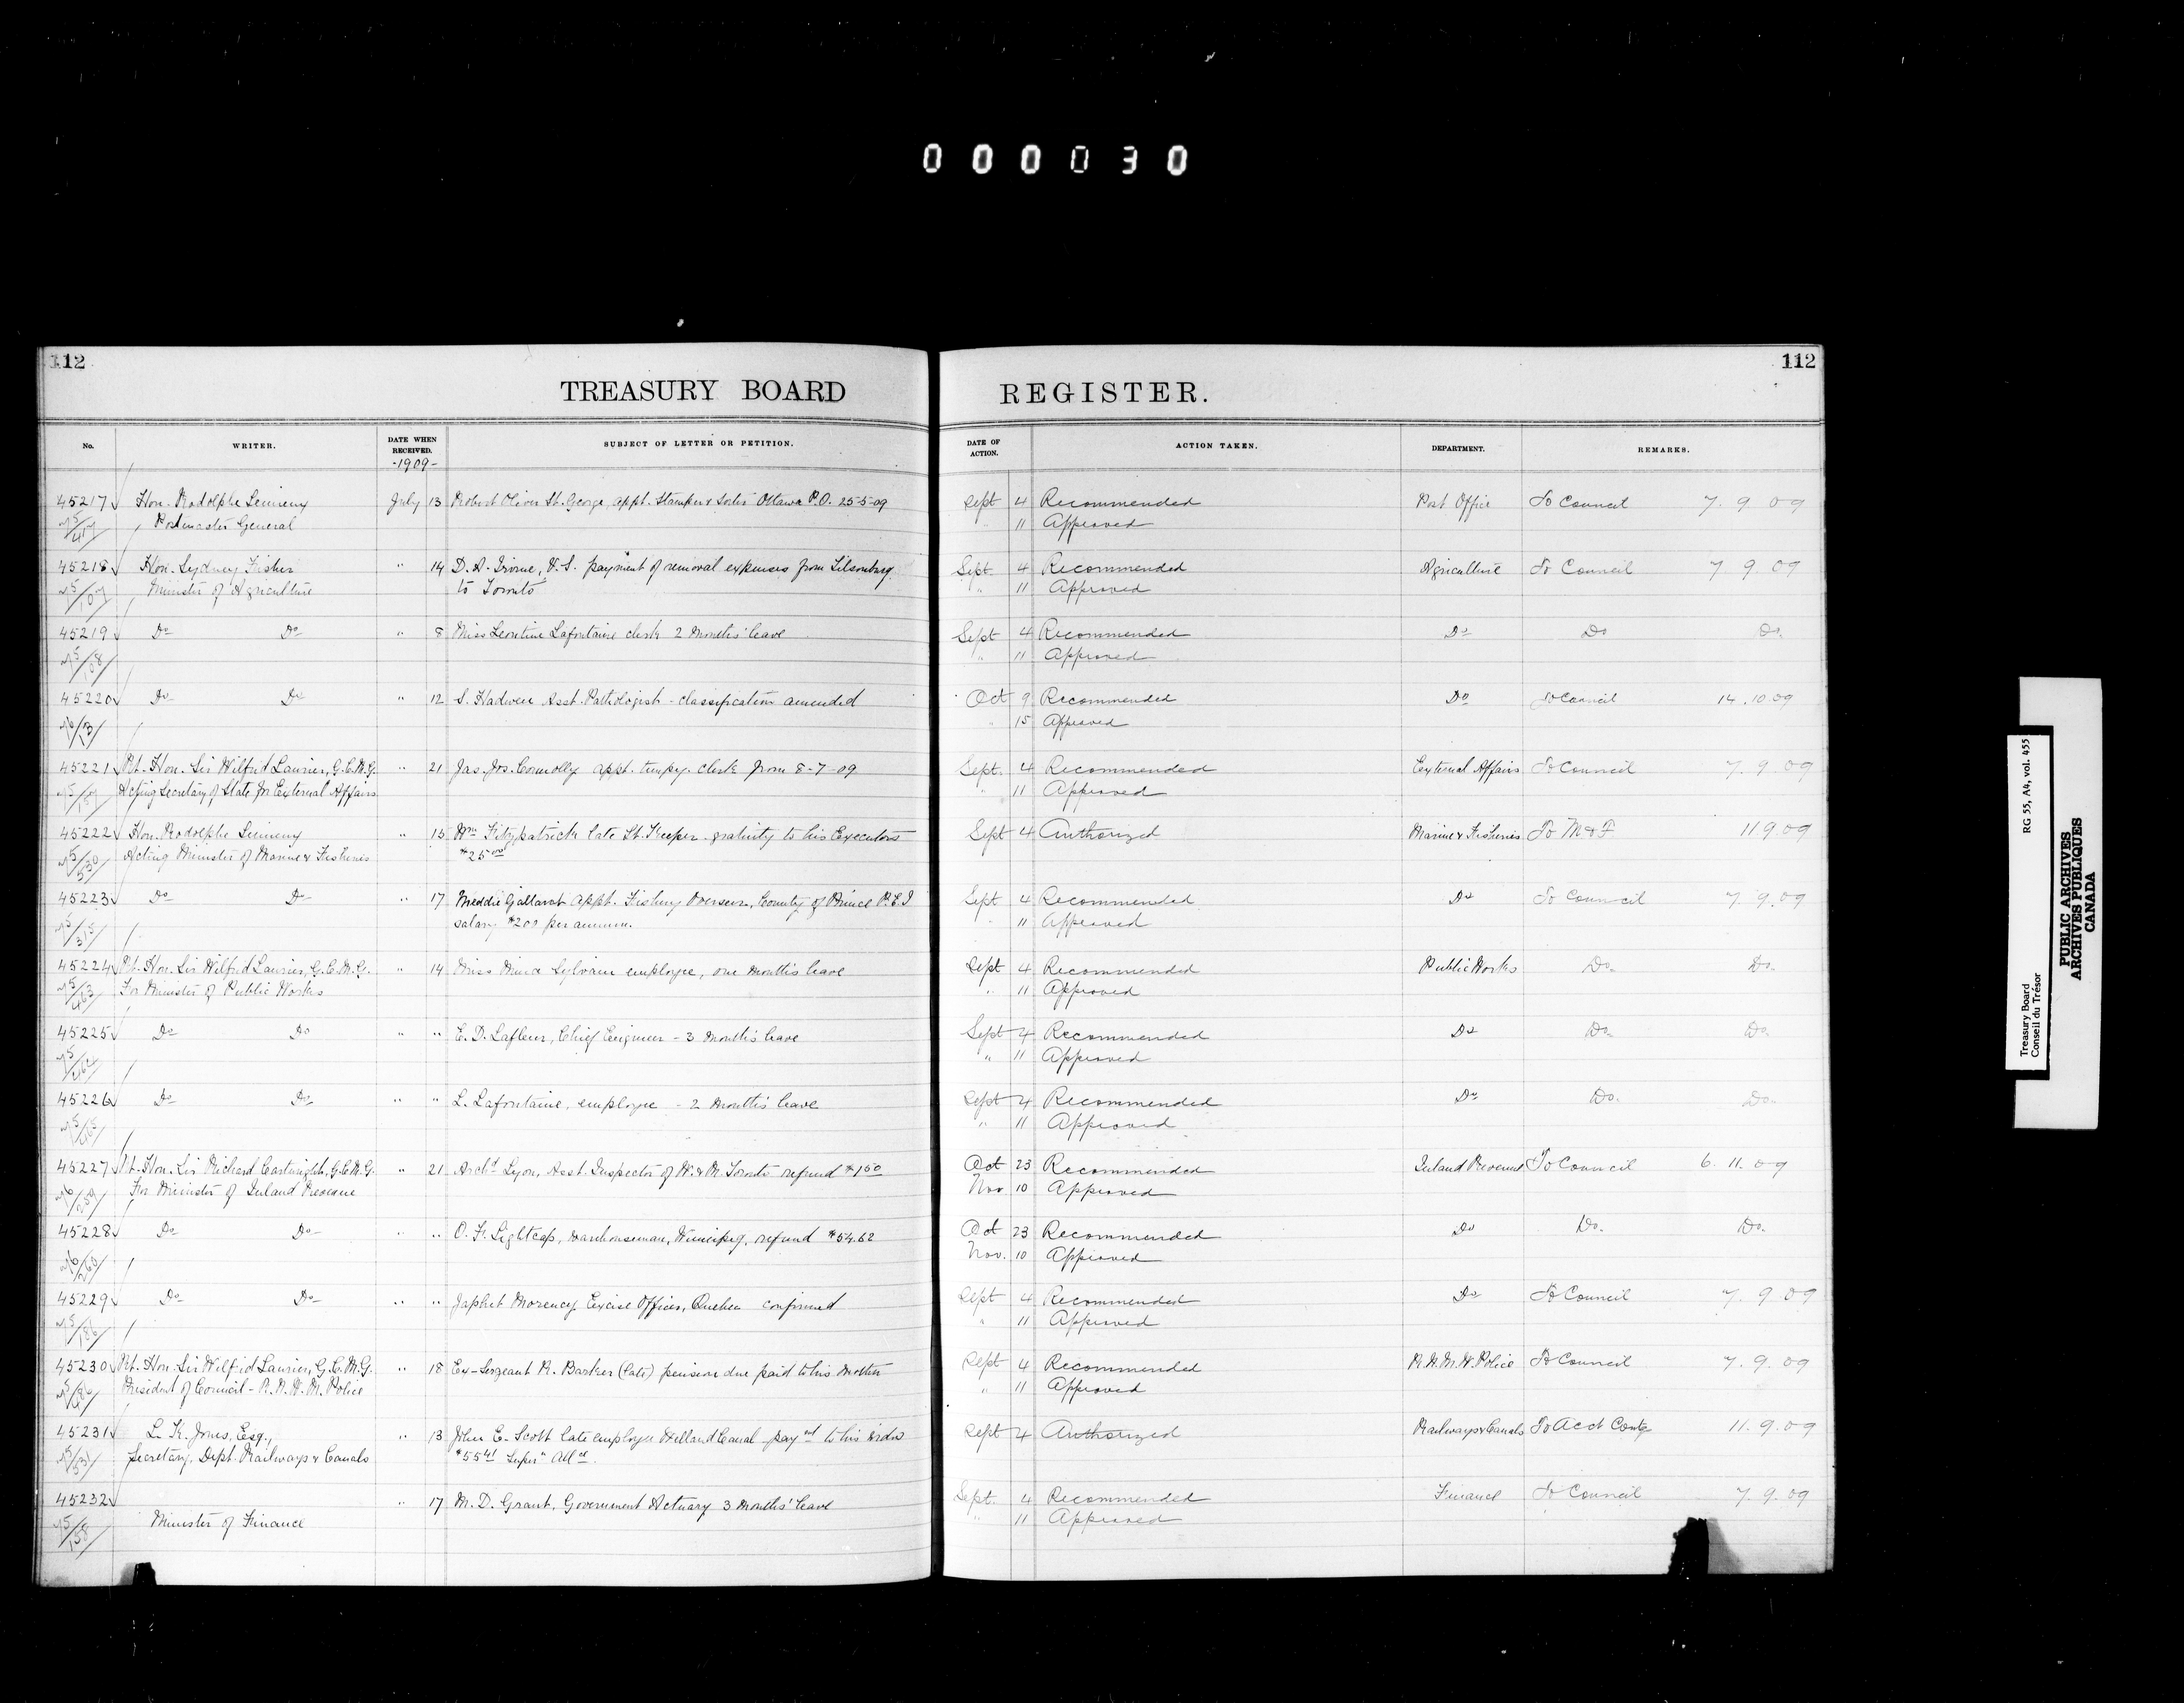 000030
112
112
TREASURY BOARD REGISTER.
No. WRITER. DATE WHEN RECEIVED. SUBJECT OF LETTER OR PETITION. DATE OF ACTION. ACTION TAKEN. DEPARTMENT. REMARKS.
-1909-
45217 Hon. Rodolphe Lemieux July 13 Robert Oliver St. George, appt. Stamper & Sorter Ottawa P.O. 25-5-09 Sept 4 Recommended Post Office To Council 7. 9 09
Postmaster General " 11 Approved
45218 Hon. Sydney Fisher " 14 D. A. Irvine, V.S. payment of removal expenses from Tilsonburg Sept. 4 Recommended Agriculture To Council 7 9 09
Minister of Agriculture to Toronto " 11 Approved
45219 Do Do " 8 Miss Leontine Lafontaine clerk 2 months' leave Sept 4 Recommended Do Do Do.
" 11 Approved
45220 Do Do " 12 S. Hadwen Asst. Pathologist - classification amended Oct 9 Recommended Do To Council 14.10.09
" 15 Approved
45221 Rt. Hon. Sir Wilfrid Laurier, G.C.M.G. " 21 Jas. Jos. Connolly appt. tempy. clerk from 8-7-09 Sept. 4 Recommended External Affairs To Council 7. 9 09
Acting Secretary of State for External Affairs " 11 Approved
45222 Hon. Rodolphe Lemieux " 15 Wm Fitzpatrick late Lt. Keeper gratuity to his Executors Sept 4 Authorized Marine & Fisheries To M & F 11 9 09
Acting Minister of Marine & Fisheries $25.00
45223 Do Do " 17 Meddie Gallant appt. Fishery Overseer, County of Prince P.E.I Sept 4 Recommended Do To Council 7. 9.09
salary $200 per annum. " 11 Approved
45224 Rt. Hon. Sir Wilfrid Laurier, G.C.M.G. " 14 Miss Mina Sylvain employee, one month's leave Sept 4 Recommended Public Works Do. Do.
For Minister of Public Works " 11 Approved
45225 Do Do " " E. D. Lafleur, Chief Engineer - 3 month's leave Sept 4 Recommended Do Do. Do.
" 11 Approved
45226 Do Do " " L. Lafontaine, employee - 2 month's leave Sept 4 Recommended Do Do. Do.
" 11 Approved
45227 Rt. Hon. Sir Richard Cartwright, G.C.M.G. " 21 Archd Lyon, Asst. Inspector of W. & M. Toronto refund $1.50 Oct 23 Recommended Inland Revenue To Council 6. 11. 09
For Minister of Inland Revenue Nov 10 Approved
45228 Do Do " " O. F. Lightcap, warehouseman, Winnipeg, refund $54.62 Oct 23 Recommended Do Do. Do.
Nov. 10 Approved
45229 Do Do " " Japhet Morency Excise Officer, Quebec confirmed Sept 4 Recommended Do To Council 7. 9 09
" 11 Approved
45230 Rt. Hon. Sir Wilfrid Laurier, G.C.M.G. " 18 Ex-Sergeant R. Barker (late) pension due paid to his mother Sept 4 Recommended R.N.W.M. Police To Council 7. 9. 09
President of Council - R.N.W.M. Police " 11 Approved
45231 L. K. Jones, Esq., " 13 John E. Scott late employee Welland Canal - payt to his widow Sept 4 Authorized Railways & Canals To Acct Contg 11. 9. 09
Secretary, Dept. Railways & Canals $55.41 Supern Allce.
45232 " 17 M. D. Grant, Government Actuary 3 months' leave Sept. 4 Recommended Finance To Council 7. 9.09
Minister of Finance " 11 Approved
Treasury Board RG 55, A4, vol. 455
Conseil du Trésor
PUBLIC ARCHIVES
ARCHIVES PUBLIQUES
CANADA